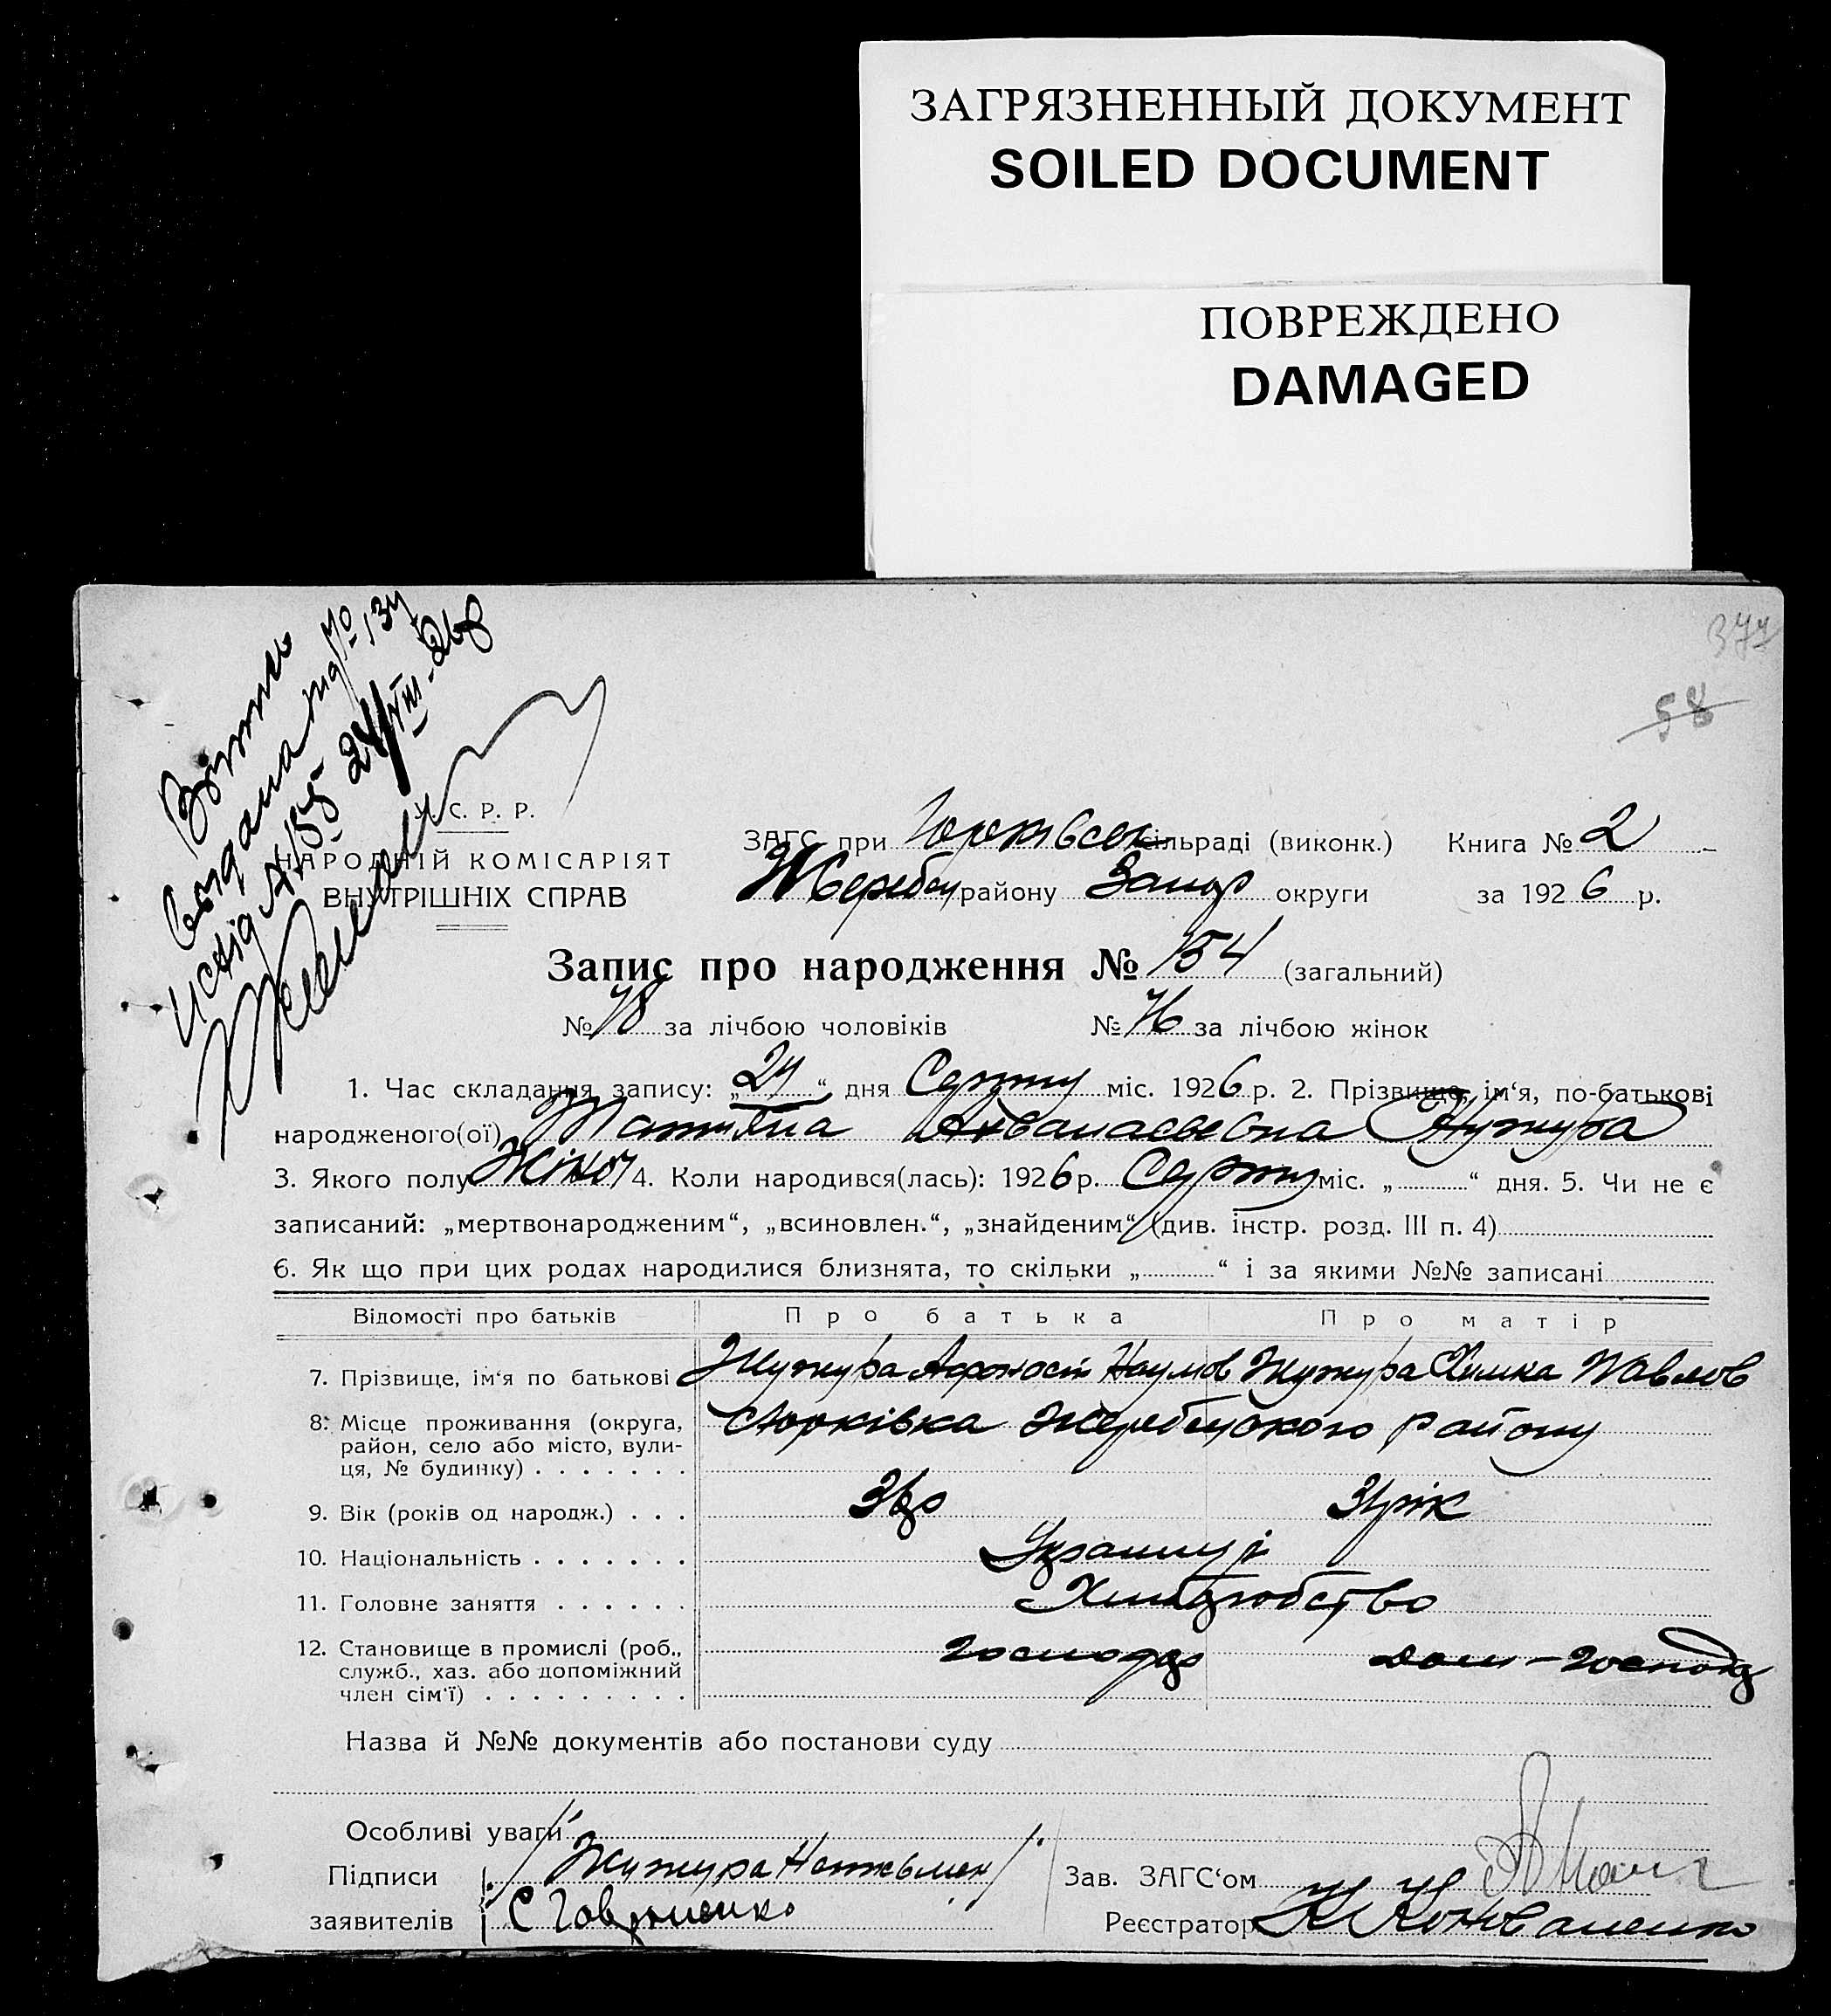 ЗАГРЯЗНЕННЫЙ ДОКУМЕНТ
SOILED DOCUMENT
ПОВРЕЖДЕНО
DAMAGED
377
58
У. С. Р. Р.
НАРОДНІЙ КОМІСАРІЯТ
ВНУТРІШНІХ СПРАВ
ЗАГС при Юрківськ сільраді (виконк.) Книга № 2
Жереб району Запор округи за 1926 р.
Запис про народження № 154 (загальний)
№ 78 за лічбою чоловіків № 76 за лічбою жінок
1. Час складання запису: „24“ дня Серпня міс. 1926 р. 2. Прізвище, ім‘я, по-батькові
народженого(ої)
3. Якого полу Жіноч 4. Коли народився(лась): 1926 р. Серпня міс. „ “ дня. 5. Чи не є
записаний: „мертвонародженим“, „всиновлен.“, „знайденим“ (див. інстр. розд. III п. 4)
6. Як що при цих родах народилися близнята, то скільки „ “ і за якими №№ записані
Відомості про батьків Про батька Про матір
7. Прізвище, ім‘я по батькові Жужура Наумов Жужура Химка Павлов
8. Місце проживання (округа, Юрківка Жеребецького району
район, село або місто, вули-
ця, № будинку)
9. Вік (років од народж.) 31 рік
10. Національність Українці
11. Головне заняття Хліборобство
12. Становище в промислі (роб., господар Дом-господ
служб., хаз. або допоміжний
член сім‘ї)
Назва й №№ документів або постанови суду
Особливі уваги
Підписи Жужура
заявителів С Гавриленко
Зав. ЗАГС‘ом
Реєстратор К Коноваленко